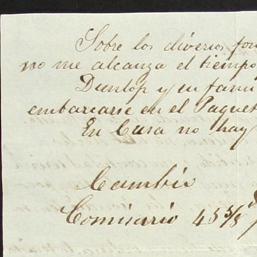 Sobre los diversos
no me alcanza el tiempo
Dunlop y su fami
embarcarse en el Paquet
En Casa no hay
Cambio
Comisario 45 5/8